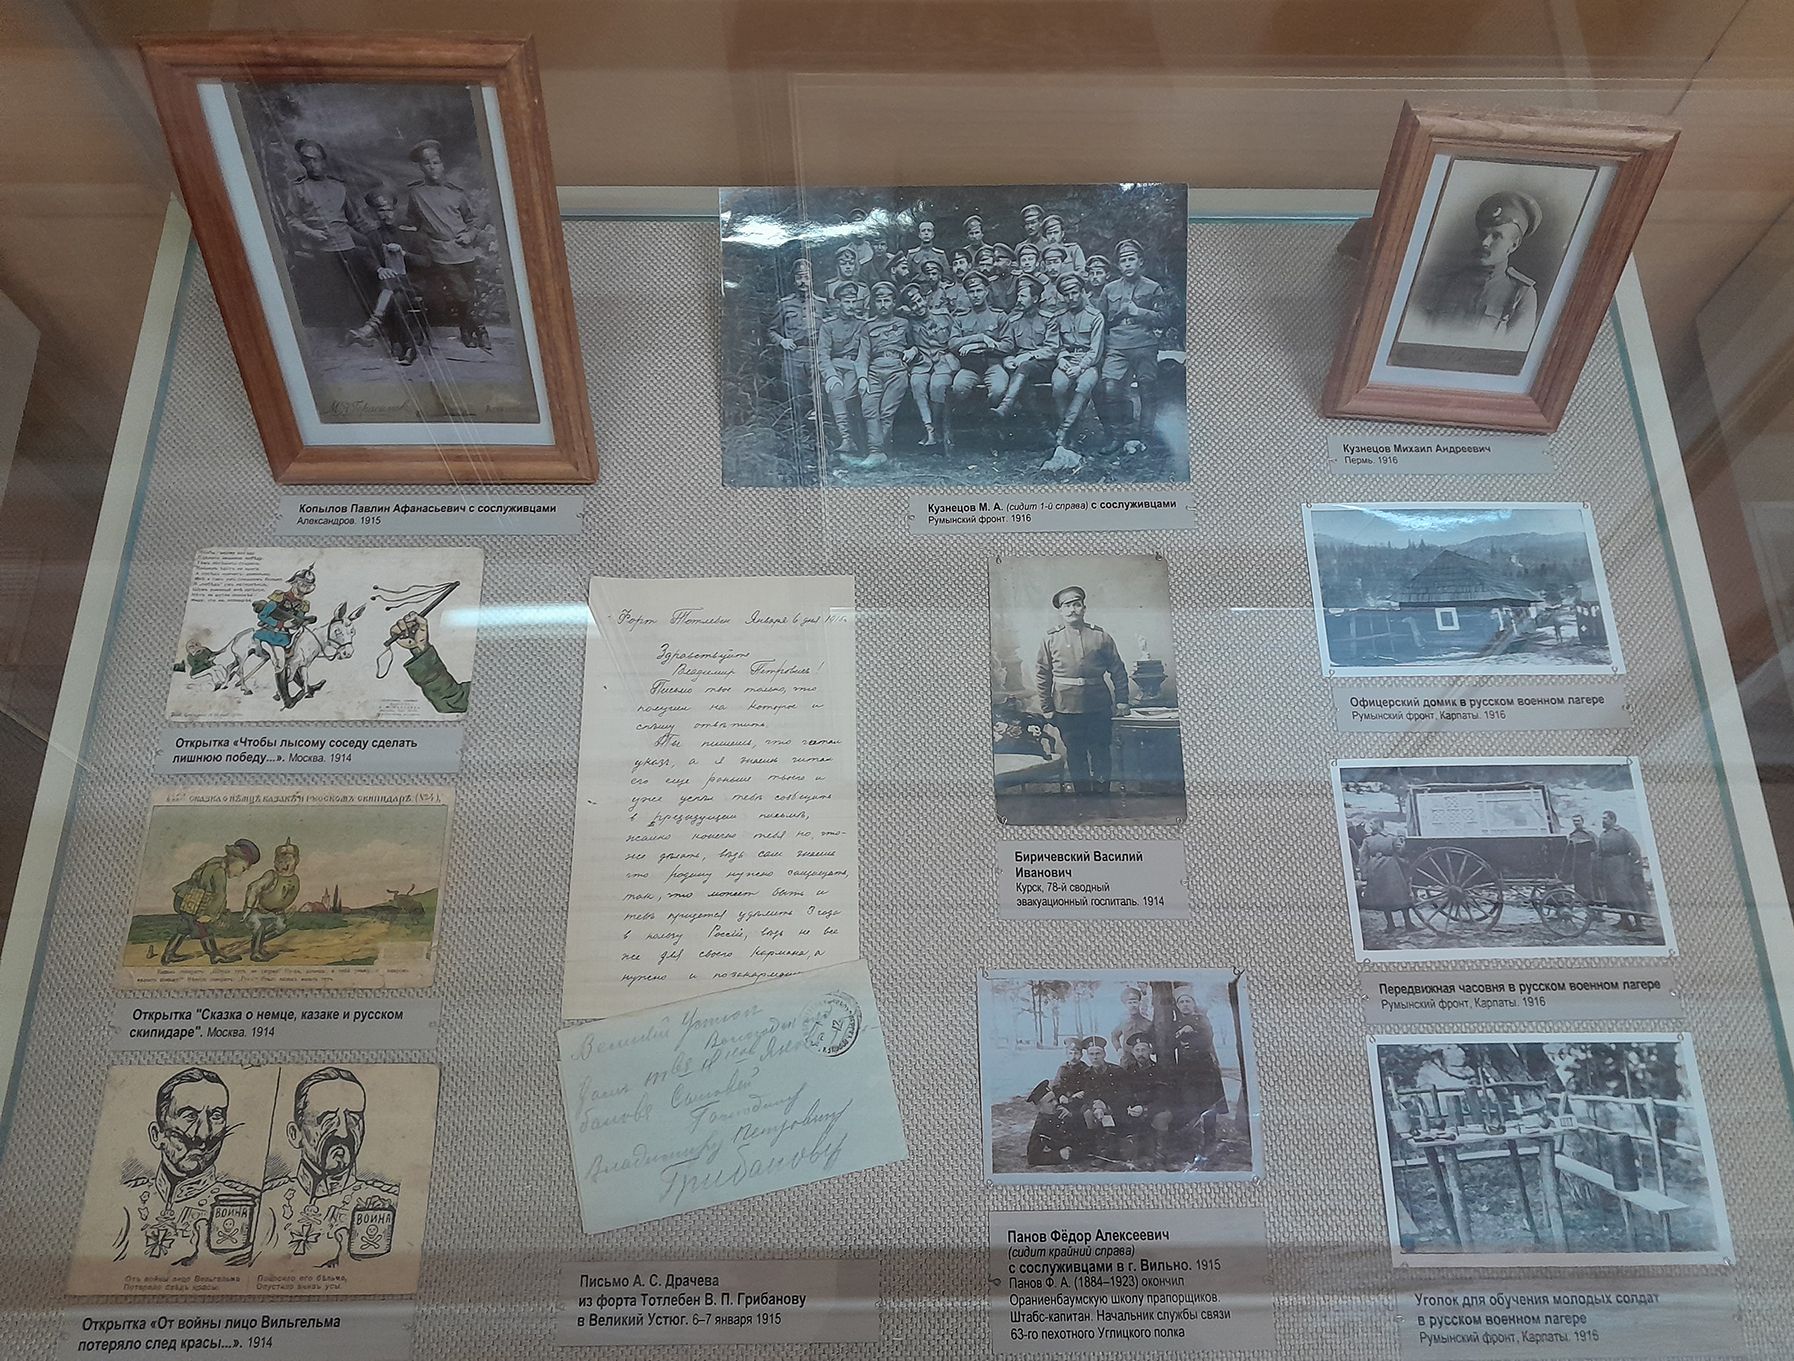 Копылов Павлин Афанасьевич с сослуживцами
Александров. 1915
Кузнецов М. А. (сидит 1-й справа) с сослуживцами
Румынский фронт. 1916
Кузнецов Михаил Андреевич
Пермь. 1916
Открытка «Чтобы лысому соседу сделать
лишнюю победу...». Москва. 1914
СКАЗКА О НѢМЦѢ, КАЗАКѢ И РУССКОМЪ СКИПИДАРѢ. (№4).
Открытка "Сказка о немце, казаке и русском
скипидаре". Москва. 1914
ВОИНА
ВОИНА
Отъ войны лицо Вильгельма
Потеряло слѣдъ красы:
Опустило внизъ усы.
Открытка «От войны лицо Вильгельма
потеряло след красы...». 1914
Форт Тотлебен Января 6 дня
Здравствуйте
Владимир Петрович!
Письмо твое только, что
получил на которое и
спѣшу отвѣтить.
Ты пишешь, что читал
указ, а я знаешь читал
его еще раньше твоего и
уже успел тебѣ сообщить
в предыдущем письмѣ,
жалко конечно тебя но, что-
же дѣлать, вѣдь сам знаешь
что родину нужно защищать,
так, что может быть и
тебѣ придется удѣлить 3 года
в пользу Россiи, вѣдь не все
же для своего кармана, а
нужно и
Великий Устюг
Господину
Владимиру Петровичу
Грибанову
Письмо А. С. Драчева
из форта Тотлебен В. П. Грибанову
в Великий Устюг. 6–7 января 1915
Биричевский Василий
Иванович
Курск, 78-й сводный
эвакуационный госпиталь. 1914
Панов Фёдор Алексеевич
(сидит крайний справа)
с сослуживцами в г. Вильно. 1915
Панов Ф. А. (1884–1923) окончил
Ораниенбаумскую школу прапорщиков.
Штабс-капитан. Начальник службы связи
63-го пехотного Углицкого полка
Офицерский домик в русском военном лагере
Румынский фронт, Карпаты. 1916
Передвижная часовня в русском военном лагере
Румынский фронт, Карпаты. 1916
Уголок для обучения молодых солдат
в русском военном лагере
Румынский фронт, Карпаты. 1916